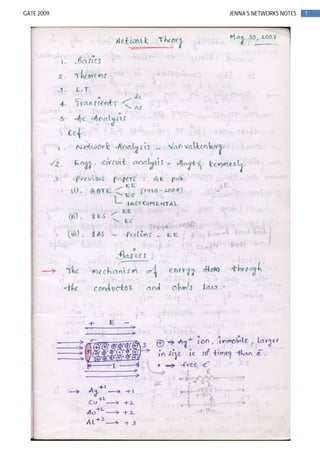 GATE 2009
JENNA'S NETWORKS NOTES
1
May, 30, 2007
Network Theory
1. Basics
2. Theorems
3. L.T.
4. Transients < dc
ac
5. Ac Analysis
Ref:
1. Network Analysis - Van valkenburg
2. Engg. circuit analysis - Hayt & kemmerly
3. Previous papers : GK pub
(i). GATE EE
EC
INSTRUMENTAL
(ii). IES < EE
EC
(iii). IAS - Prelims - EE
Basics:
The mechanism of energy through
the conductor and ohm's Law:-
+ E -
⊕ → Ag+ ion, immobile, larger
in size ie 10 times than e-.
• → free e-
L
→ Ag+1 → +1
Cu+2 → +2
Au+2 → +2
Al+3 → +3